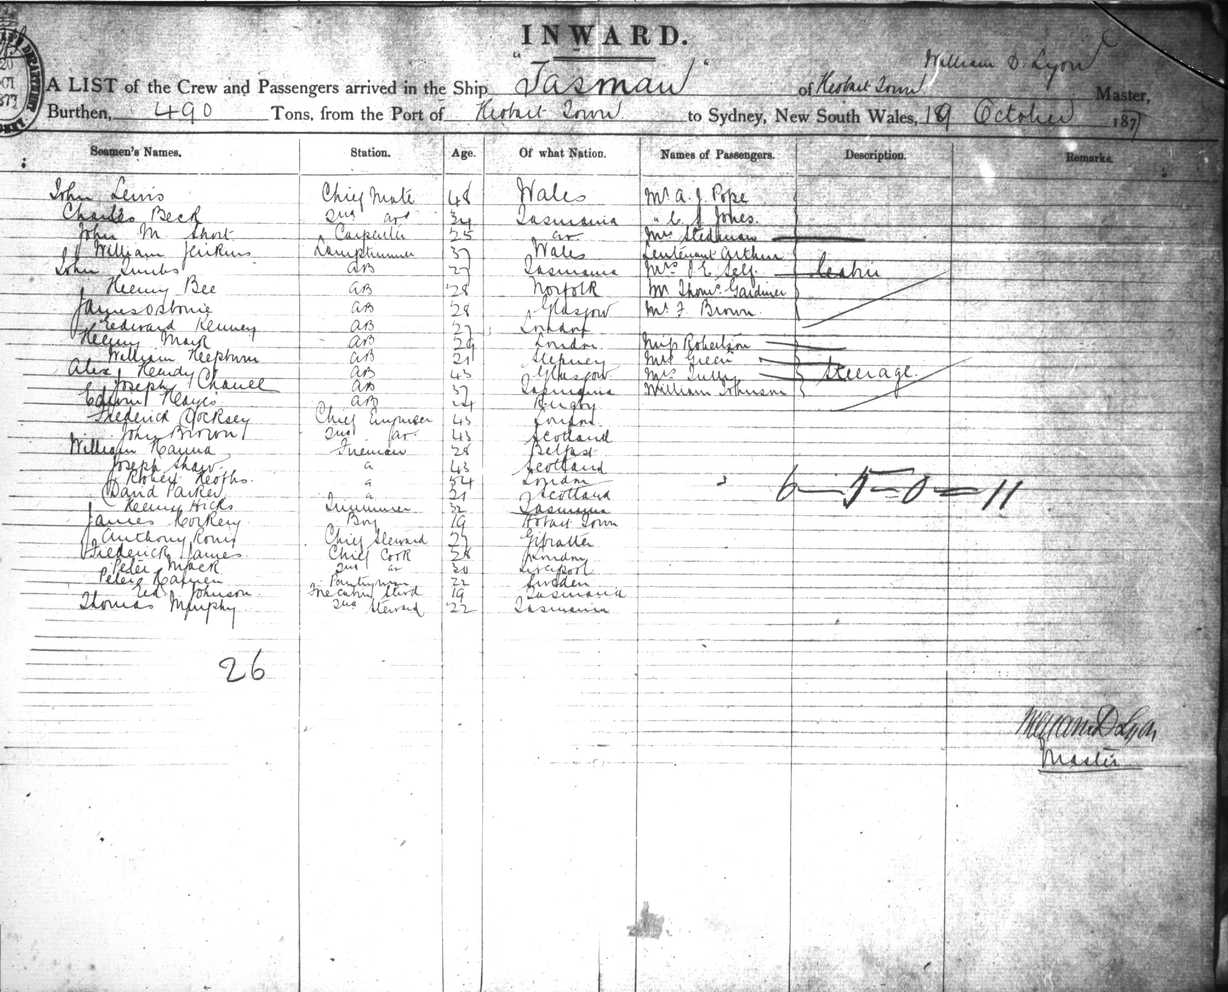 INWARD.
William D. Lyon
A LIST of the Crew and Passengers arrived in the Ship "Tasman" of Hobart Town Master,
Burthen, 490 Tons, from the Port of Hobart Town to Sydney, New South Wales, 19 October 1877
Seamen's Names. Station. Age. Of what Nation. Names of Passengers. Description. Remarks.
John Lewis Chief Mate 48 Wales Mr A. J. Pope
Charles Beck 2nd do 34 Tasmania " C J Jones.
John M Short Carpenter 25 do Mrs Stedman
William Jenkins Lamptrimmer 37 Wales Lieutenant Arthur
John AB 27 Tasmania Mrs J E Self Cabin
Henry Bee AB 28 Norfolk Mr Thoms Gardiner
James Osborne AB 28 Glasgow Mr F Brown
Edward Kenney AB 27 London
Henry Mark AB 29 London Miss Robertson
William Hepburn AB 21 Stepney Mrs Green
Alex Hendy AB 43 Glasgow Mrs Tully Steerage.
Joseph AB 37 Tasmania William Johnson
Edmund Hayes AB 24 Rugby
Frederick Cocksey Chief Engineer 43 London
John Brown 2nd do 43 Scotland
William Hanna Fireman 28 Belfast
Joseph Shaw " 43 Scotland
Robert " 34 London
David Parker " 21 Scotland
6-5-0=11
Henry Hicks Trimmer 32 Tasmania
James Corkery Boy 19 Hobart Town
Anthony Chief Steward 27 Gibralter
Frederick James Chief Cook 28 London
Peter Mack 2nd do 30 Liverpool
Peter Pantryman 22 Sweden
Ed Johnson Fore cabin Stwd 19 Tasmania
Thomas Murphy 2nd Steward 22 Tasmania
26
William D Lyon
Master